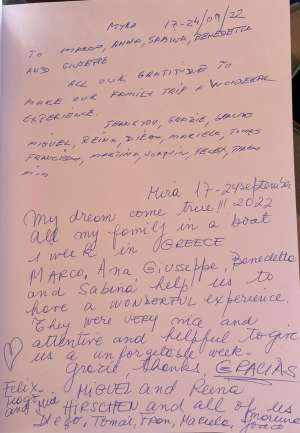 Myra 17-24/09/22
TO MARCO, ANNA, SABINA, BENEDETTA
AND GIUSEPPE
ALL OUR GRATITUDE TO
MAKE OUR FAMILY TRIP A WONDERFUL
EXPERIENCE.
THANK YOU, GRAZIE, GRACIAS
MIGUEL, REINA, DIEGO, MARIELA, TOMAS
FRANCISCO, MARTINA, JOAQUIN, FELIX,
MIA
Mira 17-24 september
2022
My dream come true!!!
All my family in a boat
1 week in GREECE
MARCO, Ana GIUSEPPE, Benedetta
and Sabina help us to
have a WONDERFUL experience.
They were very nice and
attentive and helpful to give
us a unforgetable week.
Grazie, thanks, GRACIAS
Felix
and Mia
MIGUEL and Reina
HIRSCHEN and all of us
Diego, Tomas, Fran,